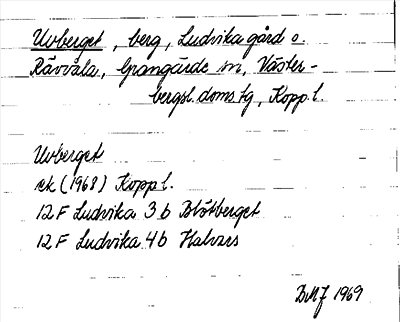 Uvberget, berg, Ludvika gård o.
Rävvåla, Grangärde sn, Väster-
bergsl. doms tg, Kopp. l.
Uvberget
ek (1968) Kopp l.
12 F Ludvika 3 b Blötberget
12 F Ludvika 4 b Halvars
DMJ 1969